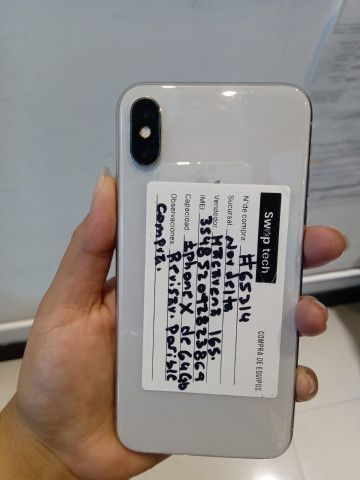 swop tech COMPRA DE EQUIPOS
N°de compra: #65214
Sucursal: Nordelta
Vendedor: Macarena IGS.
IMEI:
Capacidad: Iphone X de 64Gb
Observaciones: Revisar. Posible
compra.